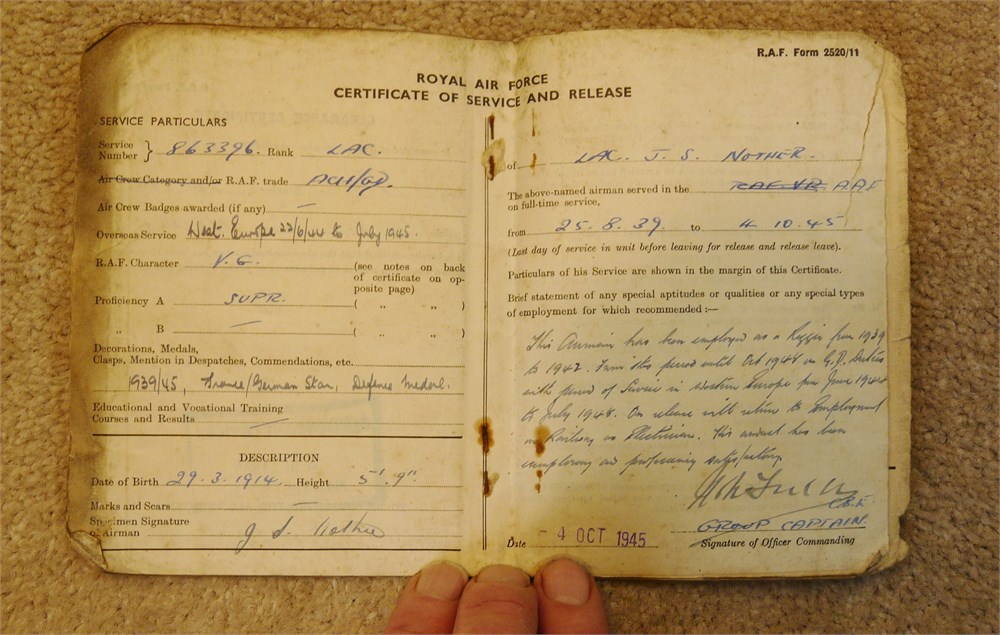 ROYAL AIR FORCE
CERTIFICATE OF SERVICE AND RELEASE
SERVICE PARTICULARS
Service Number } 863396. Rank LAC.
Air Crew Category and/or R.A.F. trade ACH/GD.
Air Crew Badges awarded (if any) —
Overseas Service West. Europe 22/6/44 to July 1945.
R.A.F. Character V.G. (see notes on back
of certificate on op-
posite page)
Proficiency A SUPR. ( „ „ )
„ B — ( „ „ )
Decorations, Medals,
Clasps, Mention in Despatches, Commendations, etc.
1939/45, France/German Star, Defence Medal.
Educational and Vocational Training
Courses and Results —
DESCRIPTION
Date of Birth 29.3.1914. Height 5' 9"
Marks and Scars —
Specimen Signature
of Airman J. S. Nother
R.A.F. Form 2520/11
of LAC. J. S. NOTHER.
The above-named airman served in the RAFVR AAF
on full-time service,
from 25.8.39. to 4 10.45
(Last day of service in unit before leaving for release and release leave).
Particulars of his Service are shown in the margin of this Certificate.
Brief statement of any special aptitudes or qualities or any special types
of employment for which recommended :—
This Airman has been employed as a Rigger from 1939
to 1942. From this period until Oct on G.D. Duties
with period of Service in western Europe from June 1944
to July 194. On release will return to employment
on Railway as Electrician. His conduct has been
exemplary and proficiency satisfactory
C.B.E
GROUP CAPTAIN.
Date - 4 OCT 1945
Signature of Officer Commanding